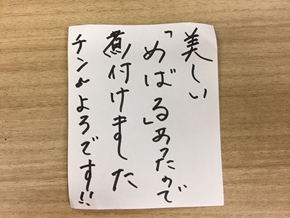 美しい
「めばる」あったので
煮付けました
チンしよろです!!